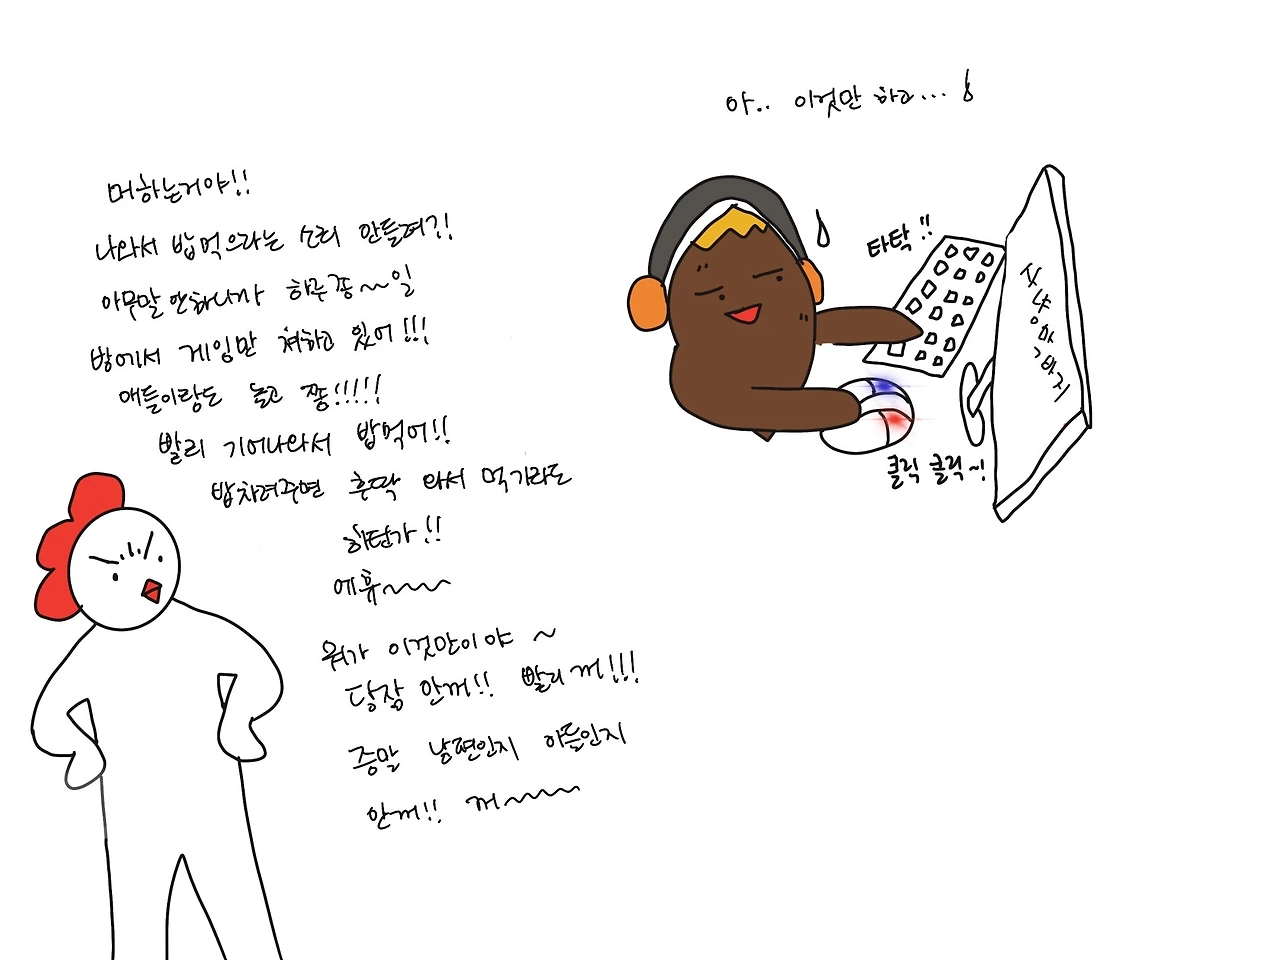 아.. 이것만 하고...
머하는거야!!
나와서 밥먹으라는 소리 안들려?!
아무말 안하니까 하루종~~일
방에서 게임만 쳐하고 있어!!!
애들이랑도 놀고 쫑!!!!!
빨리 기어나와서 밥먹어!!
밥차려주면 후딱 와서 먹기라도
하던가!!
에휴~~~
뭐가 이것만이야 ~
당장 안꺼!! 빨리 꺼!!!
증말 남편인지 아들인지
안꺼!! 꺼~~~~
타탁!!
클릭 클릭~!